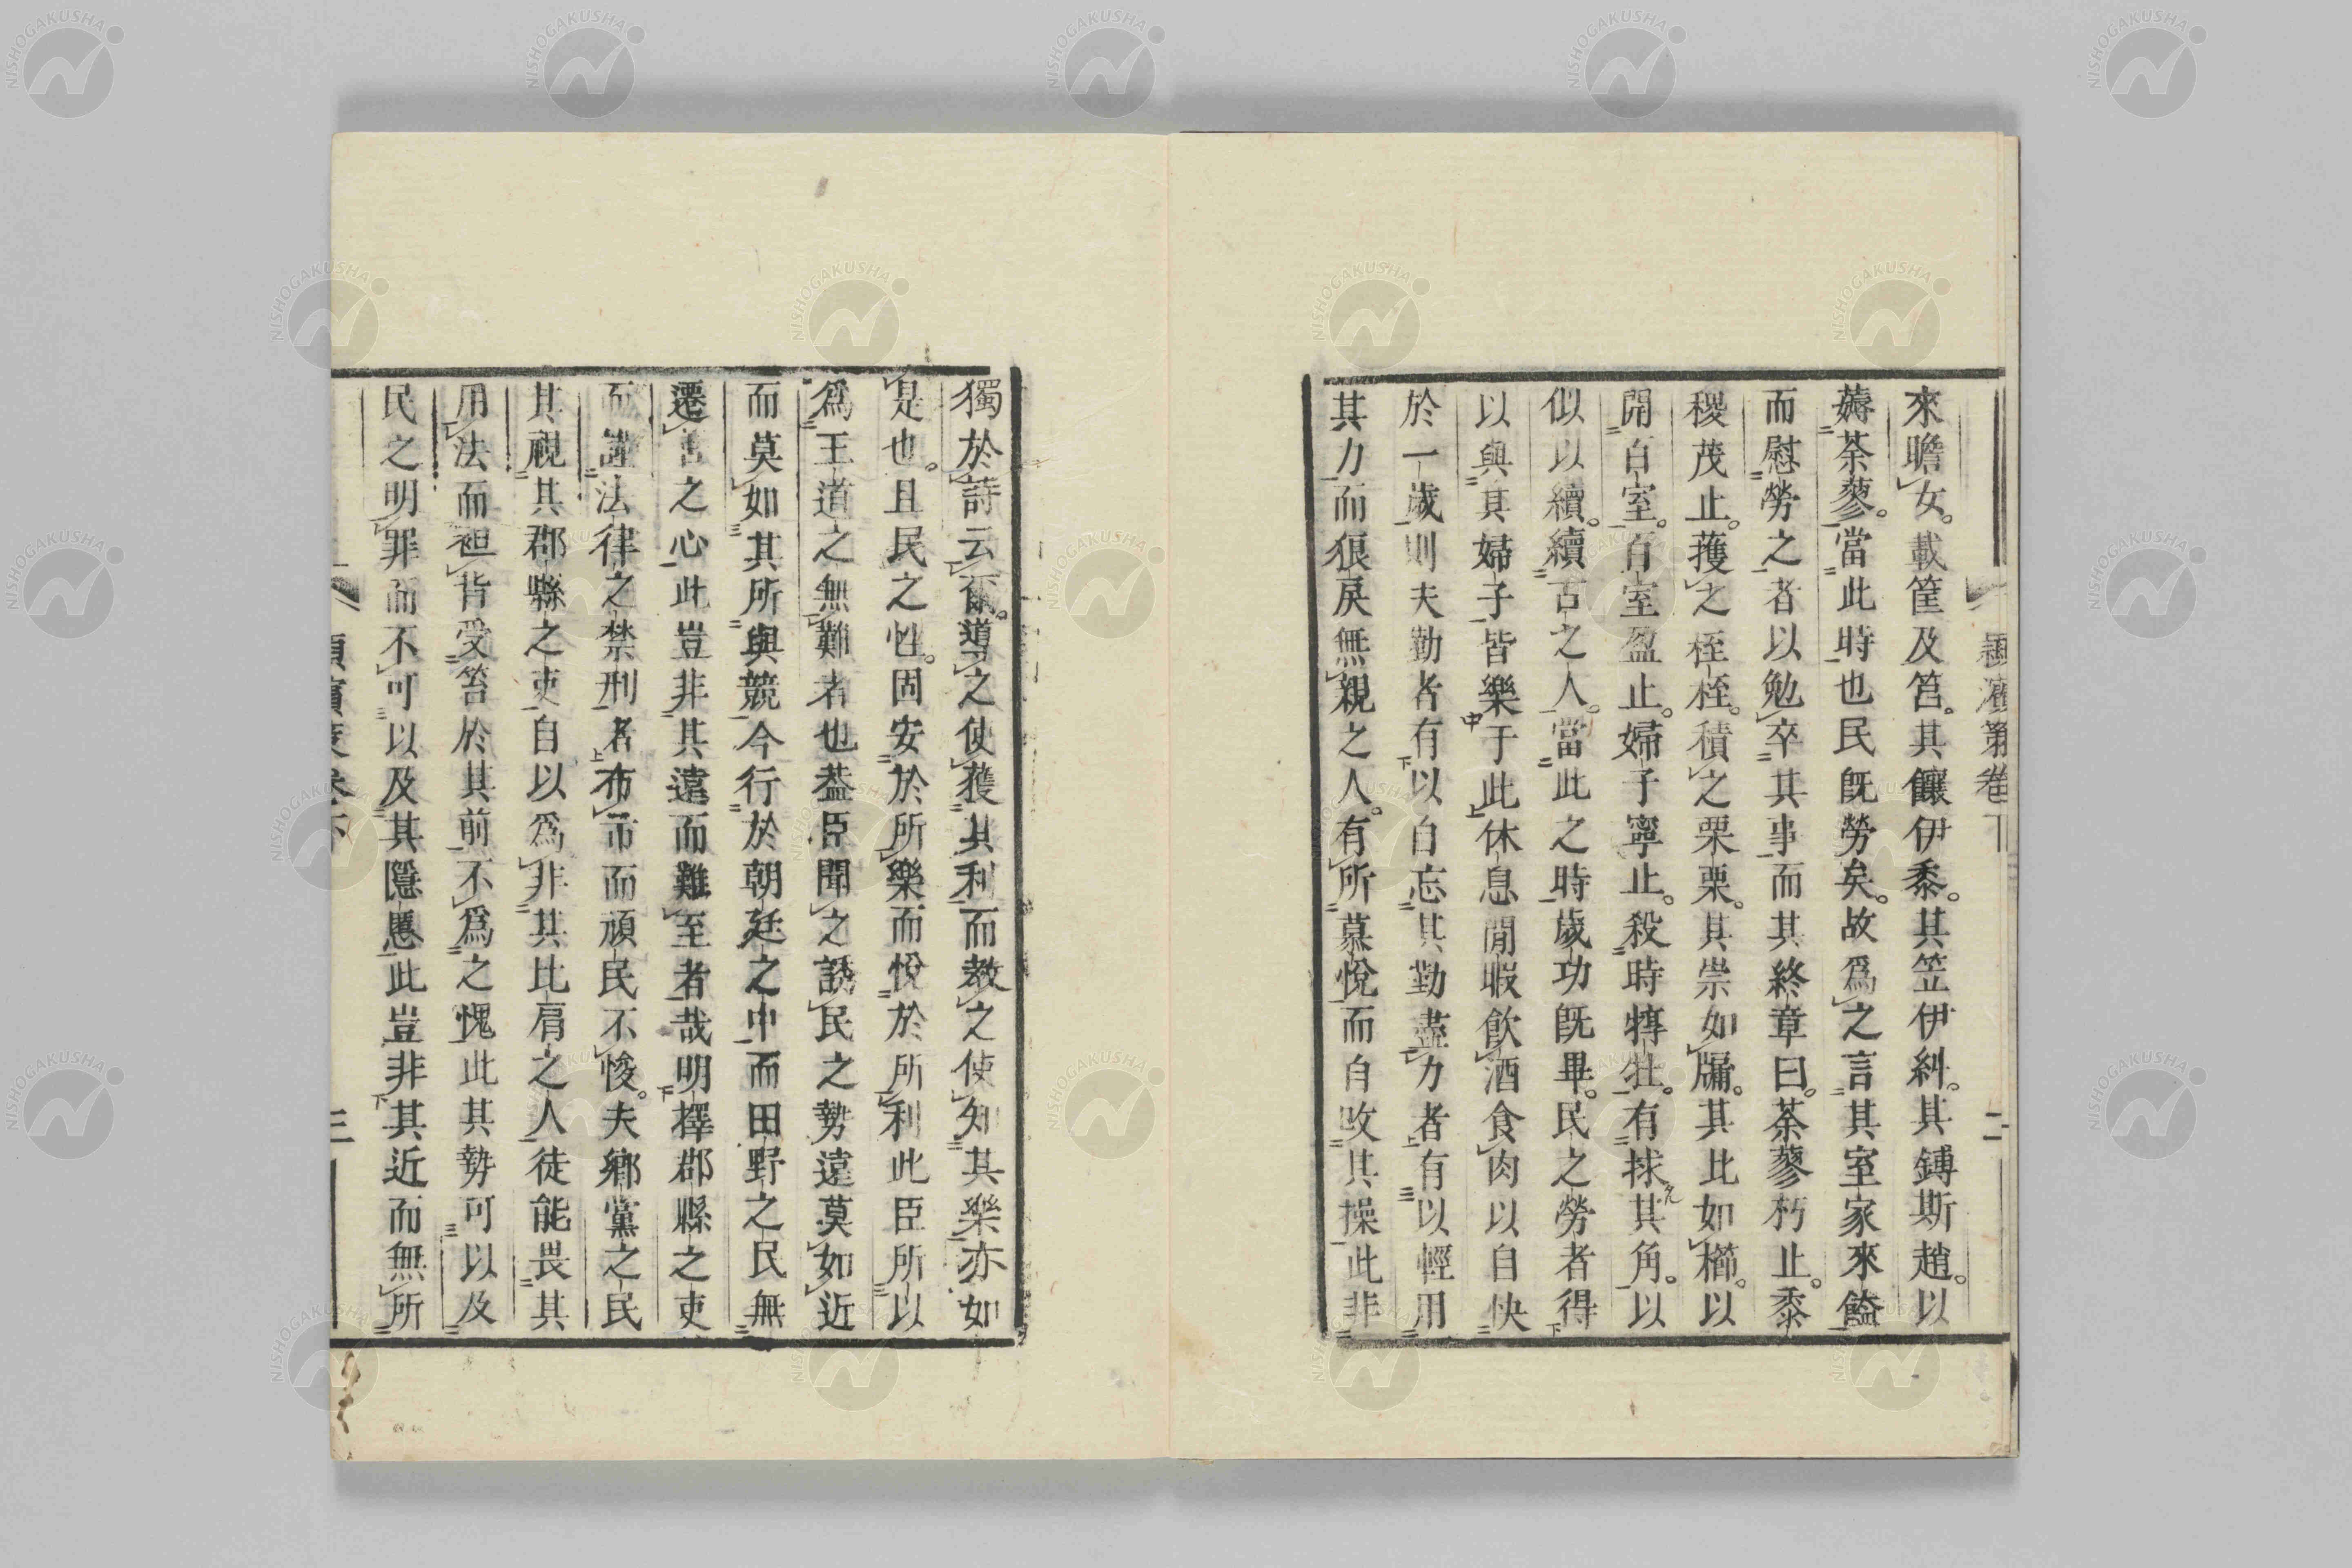 穎濱策卷下
二
來瞻女。載筐及筥。其饟伊黍。其笠伊糾。其鎛斯趙。以
薅荼蓼。當此時也民既勞矣。故爲之言其室家來饁
而慰勞之者以勉卒其事而其終章曰。荼蓼朽止。黍
稷茂止。穫之桎桎。積之栗栗。其崇如墉。其比如櫛。以
開百室。百室盈止。婦子寧止。殺時犉牡。有捄其角。以
似以續。續古之人。當此之時歲功既畢。民之勞者得
以與其婦子皆樂于此休息閒暇飲酒食肉以自快
於一歲則夫勤者有以自忘其勤盡力者有以輕用
其力而狠戾無親之人。有所慕悅而自改其操此非
獨於詩云爾。導之使獲其利而教之使知其樂亦如
是也。且民之性。固安於所樂而悅於所利此臣所以
爲王道之無難者也蓋臣聞之誘民之勢遠莫如近
而莫如其所與競今行於朝廷之中而田野之民無
遷善之心此豈非其遠而難至者哉明擇郡縣之吏
而謹法律之禁刑者布市而頑民不悛。夫鄉黨之民
其視其郡縣之吏自以爲非其比肩之人徒能畏其
用法而袒背受笞於其前不爲之愧此其勢可以及
民之明罪而不可以及其隱慝此豈非其近而無所
穎濱策卷下
三
NISHOGAKUSHA